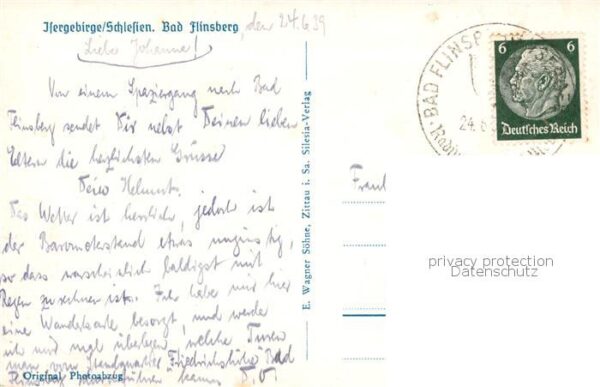 Isergebirge/Schlesien. Bad Flinsberg den 24.6.39
Liebe Johanne!
Von einem Spaziergang nach Bad
Flinsberg sendet Dir nebst Deinen lieben
Eltern die herzlichsten Grüsse
Helmut.
Das Wetter ist herrlich, jedoch ist
der Barometerstand etwas ungünstig,
so dass wahrscheinlich baldigst mit
Regen zu rechnen ist. habe mir hier
eine Wanderkarte besorgt, und werde
ich und mal überlegen, welche Turen
man vom Standquartier Friedrichshöhe Bad
Flinsberg kann.
Original Photoabzug
E. Wagner Söhne, Zittau i. Sa. Silesia-Verlag
BAD FLINSB
24.6
6 6
Deutsches Reich
privacy protection
Datenschutz